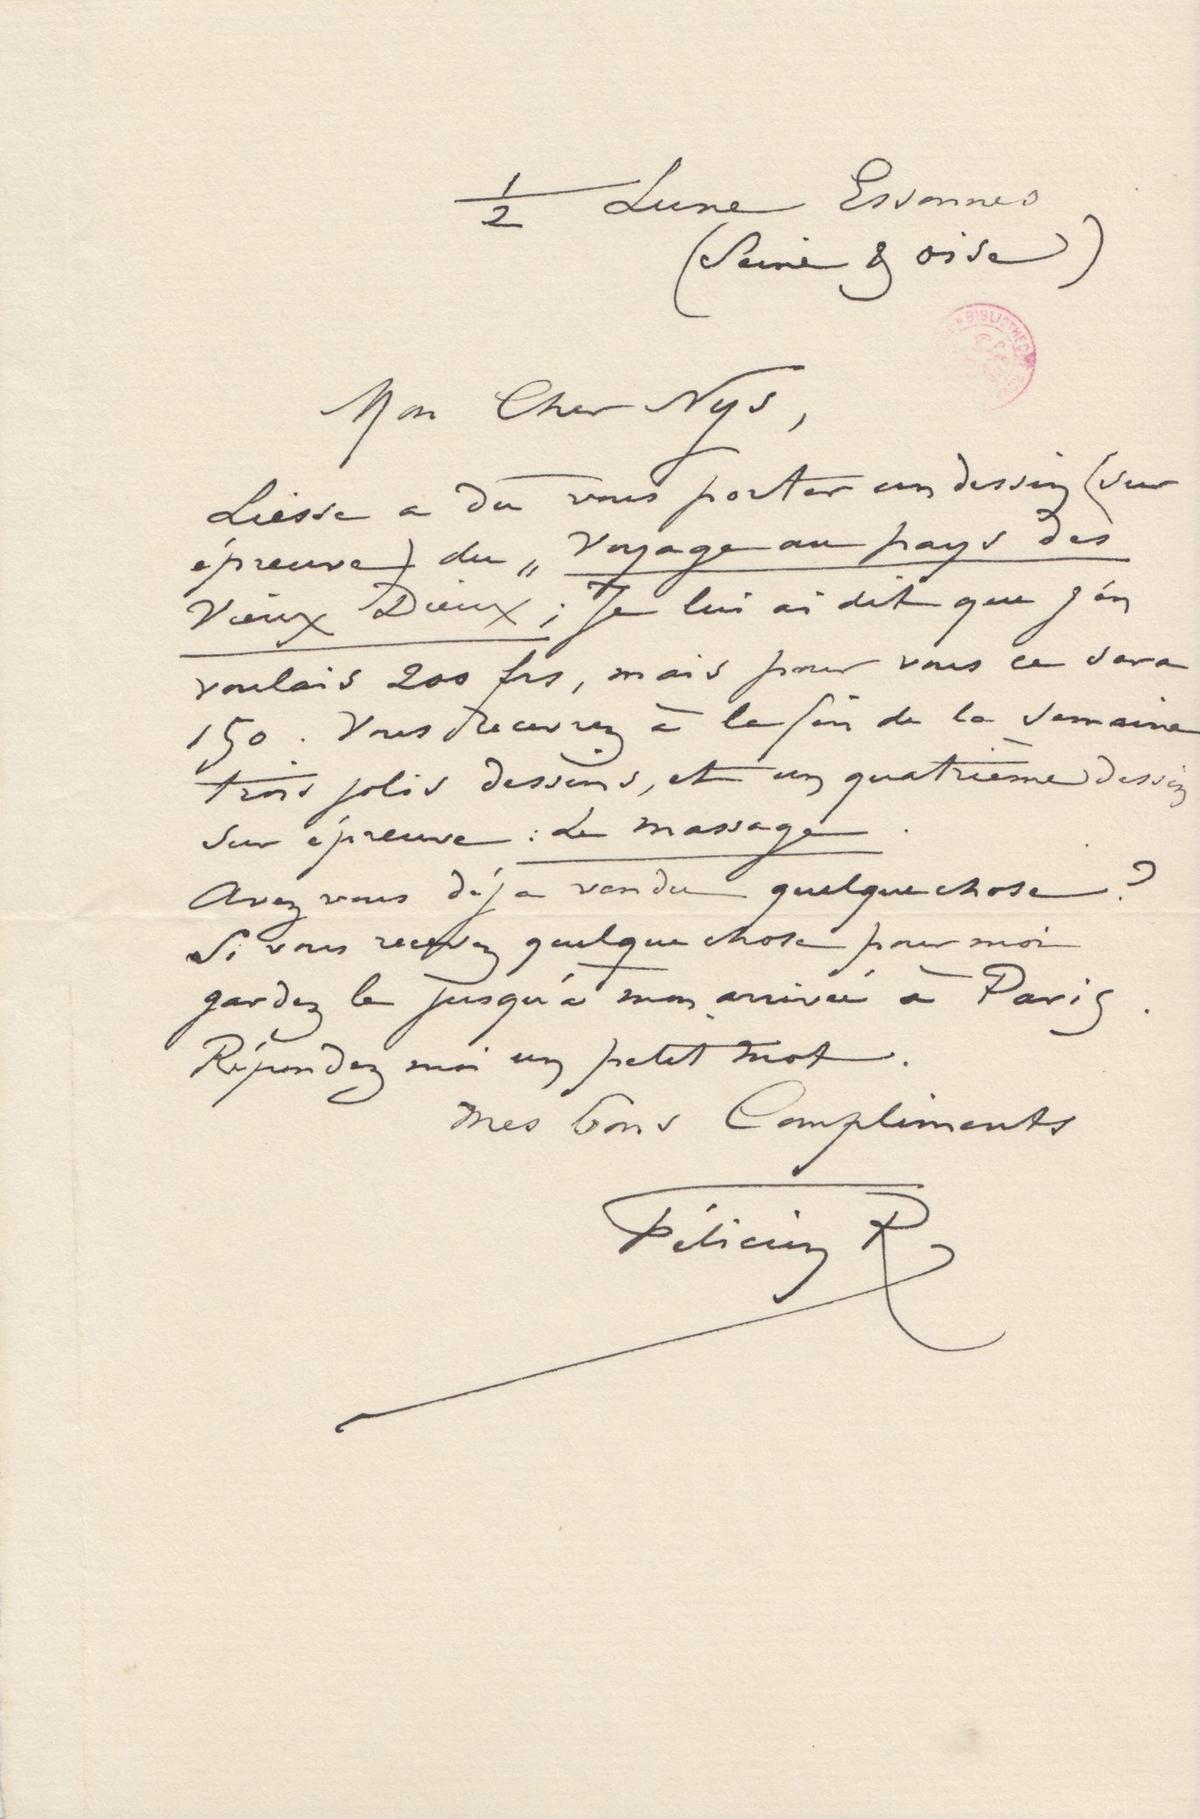 1/2 Lune Essonnes
(Seine & oise)
BIBLIOTHEC
Mon Cher Nys,
Liesse a dû vous porter un dessin (sur
épreuve) du „ Voyage au pays des
Vieux Dieux ; Je lui ai dit que j'en
voulais 200 frs, mais pour vous ce sera
150. Vous recevrez à la fin de la semaine
trois jolis dessins, et un quatrième dessin
sur épreuve : Le massage.
Avez vous déja vendu quelquechose ?
Si vous recevez quelque chose pour moi
gardez le jusqu'à mon arrivée à Paris.
Répondez moi un petit mot.
Mes bons Compliments
Félicien R